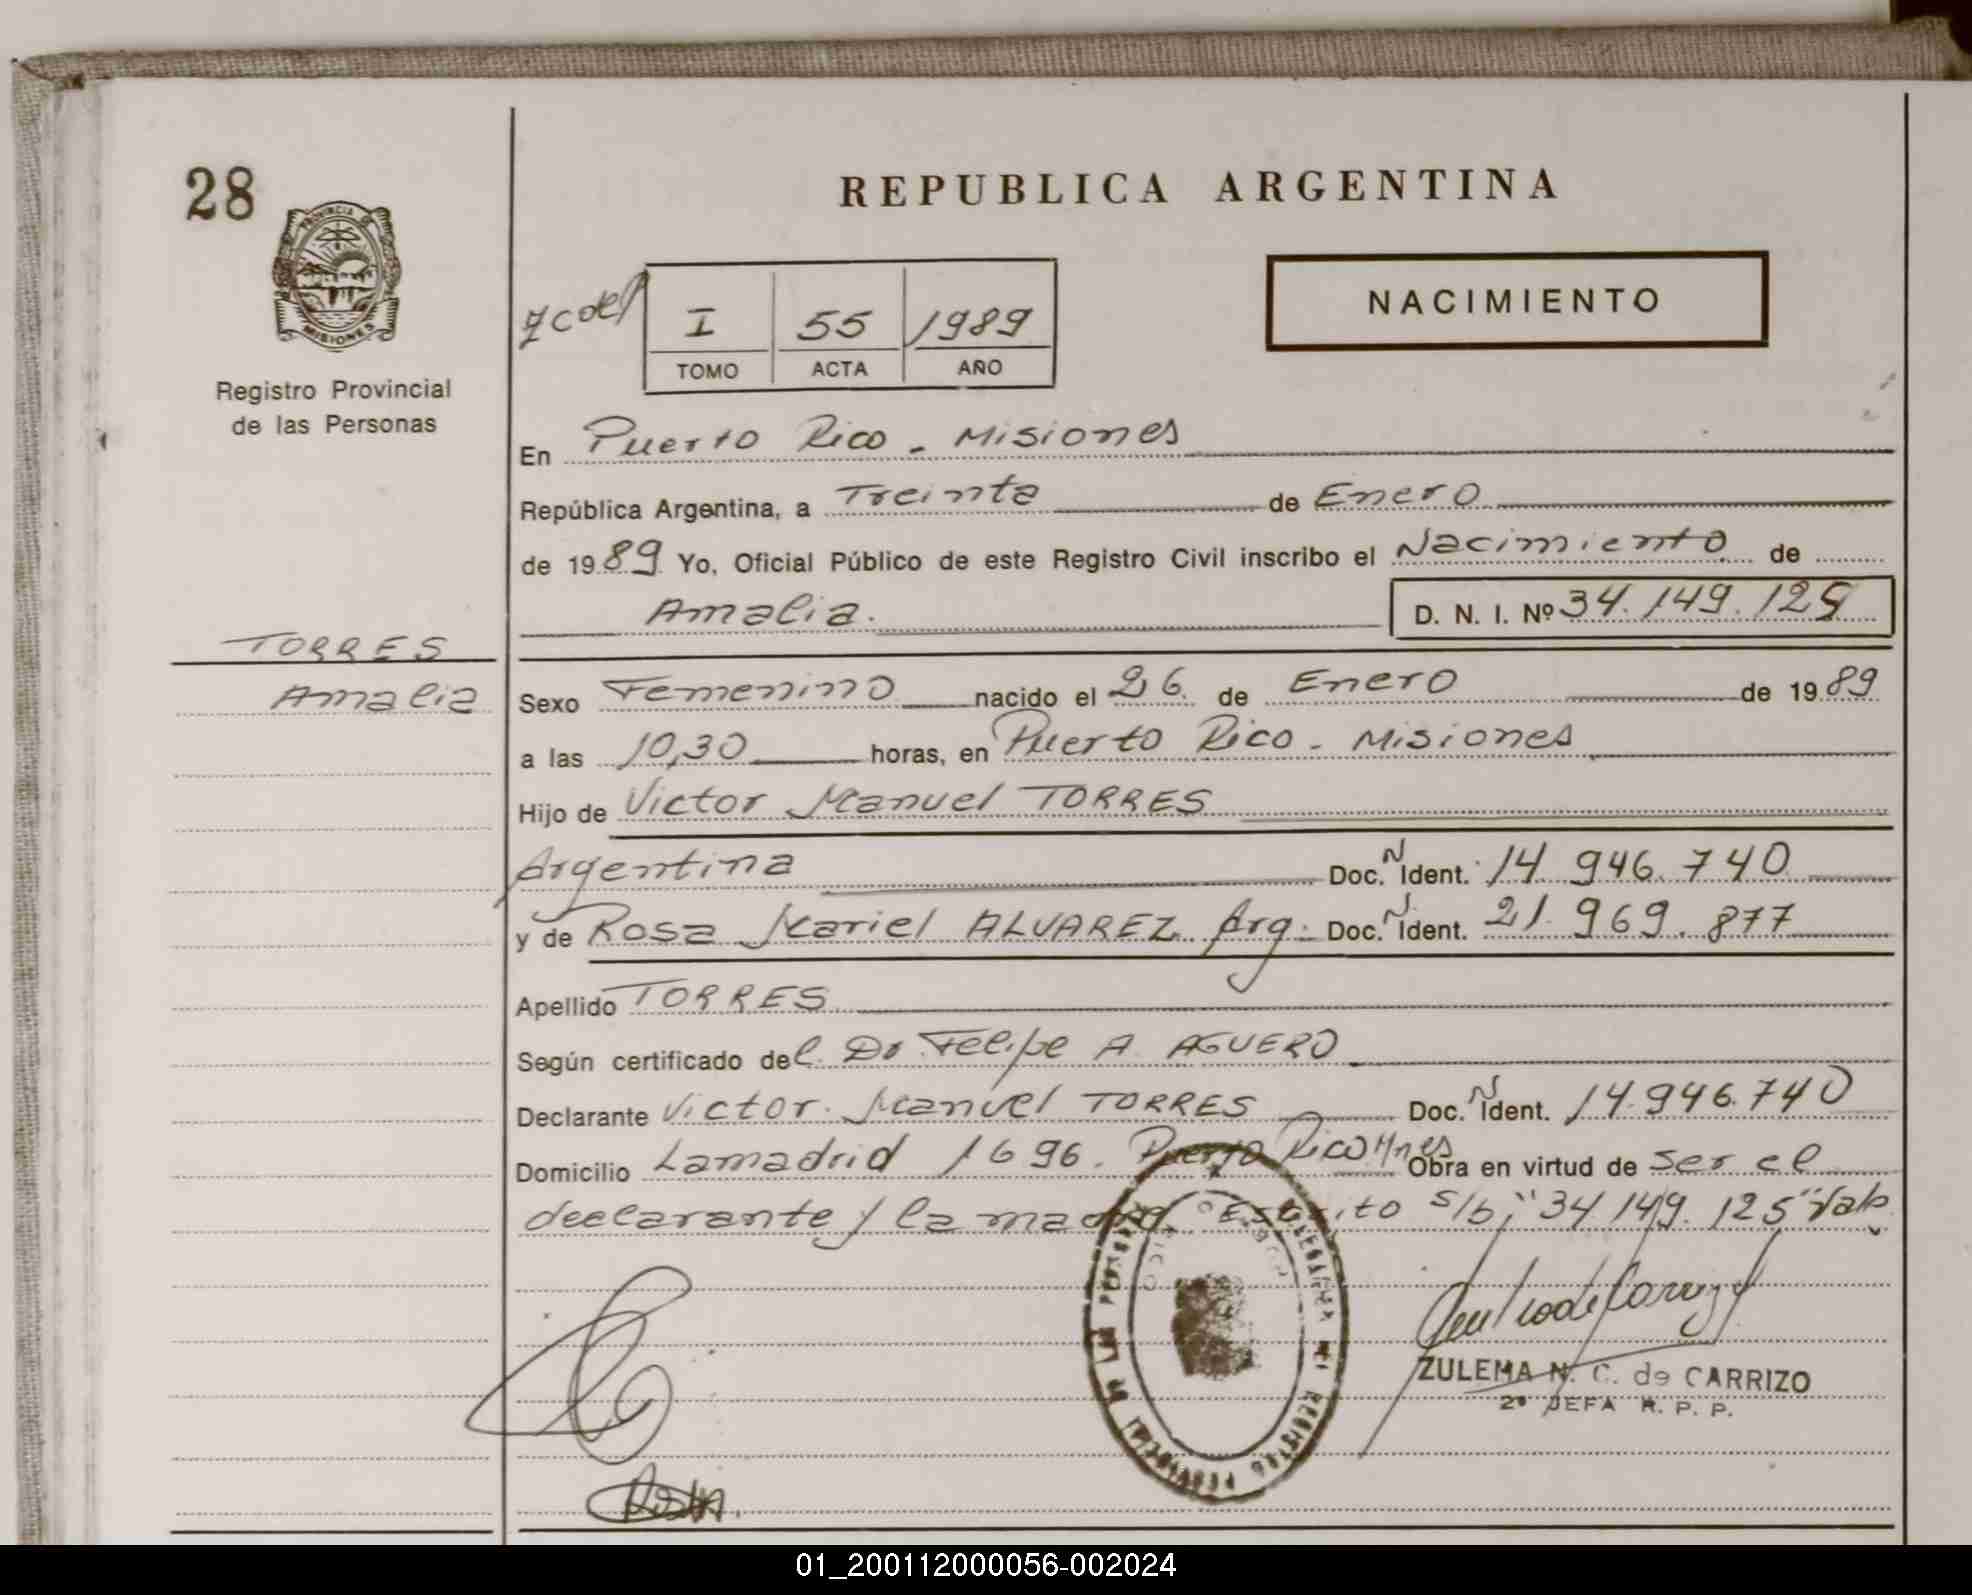 28
PROVINCIA DE
MISIONES
Registro Provincial
de las Personas
TORRES
Amalia
REPUBLICA ARGENTINA
I 55 1989
TOMO ACTA AÑO
NACIMIENTO
En Puerto Rico - Misiones
República Argentina, a Treinta de Enero
de 1989 Yo, Oficial Público de este Registro Civil inscribo el Nacimiento de
Amalia. D. N. I. Nº 34.149.125
Sexo Femenino nacido el 26 de Enero de 1989
a las 10,30 horas, en Puerto Rico - Misiones
Hijo de Victor Manuel TORRES
Argentina Doc. N Ident. 14.946.740
y de Rosa Mariel ALVAREZ Arg. Doc. N. Ident. 21.969.877
Apellido TORRES
Según certificado del Dr. Felipe A. AGUERO
Declarante Victor Manuel TORRES Doc. N Ident. 14.946.740
Domicilio Lamadrid 1696. Puerto Rico Mnes Obra en virtud de ser el
declarante y la madre. Escrito s/b; "34.149.125" Vale
ZULEMA N. C. de CARRIZO
2º JEFA R. P. P.
01_200112000056-002024